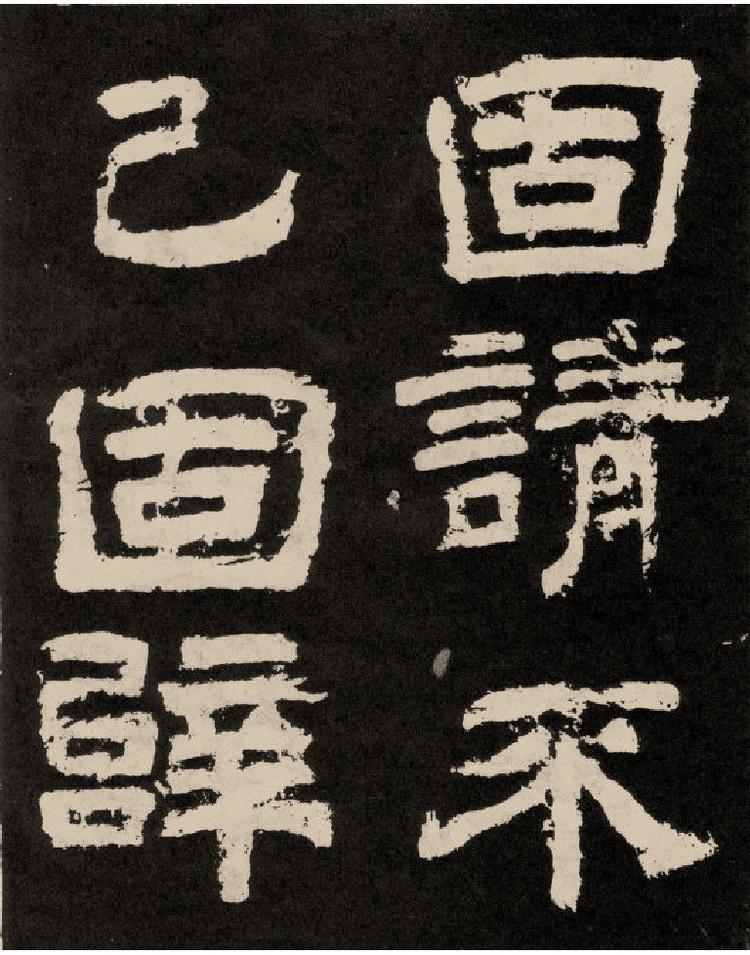 固請不
已固辭